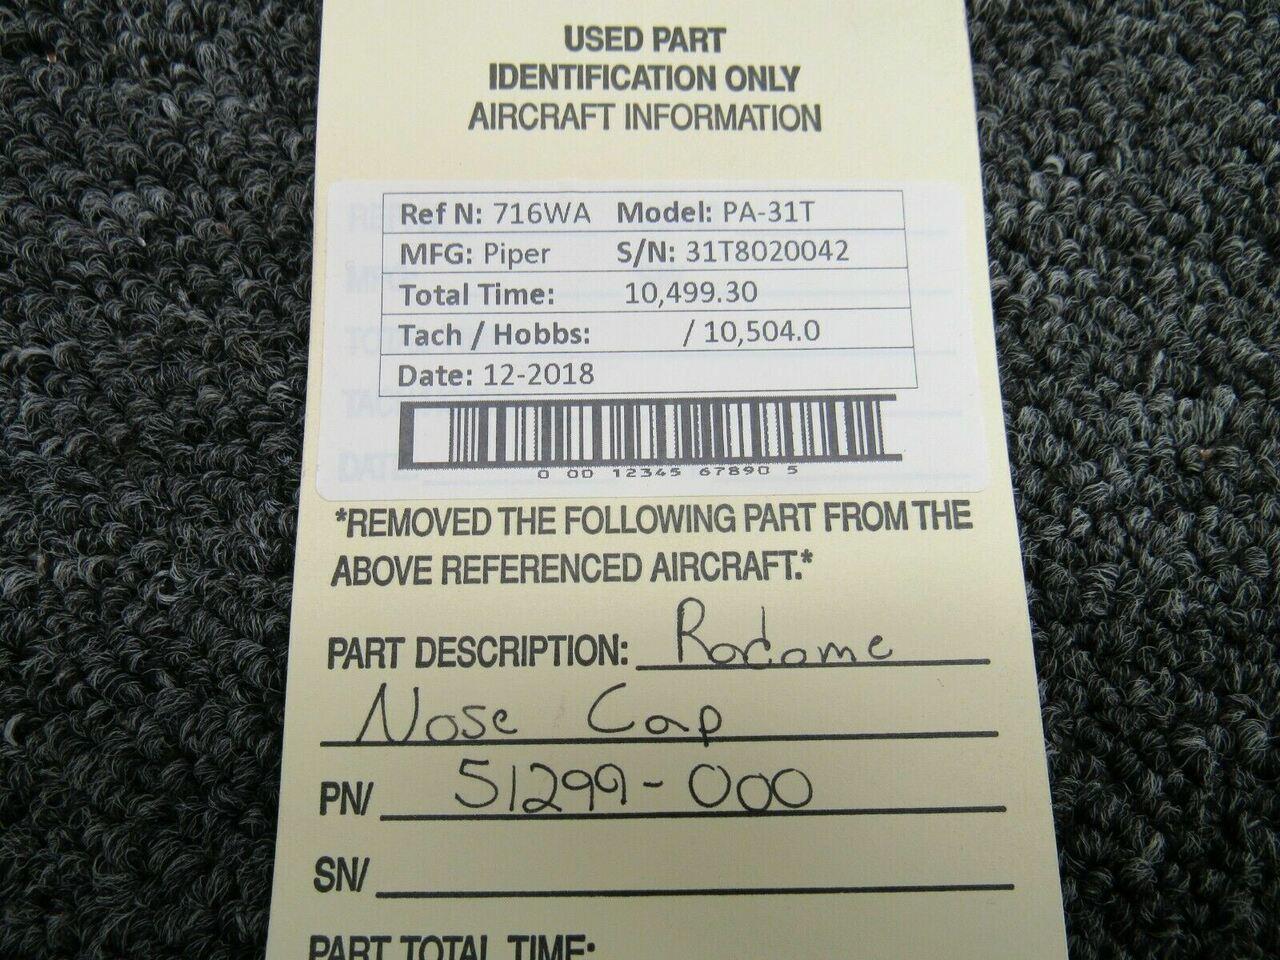 USED PART
IDENTIFICATION ONLY
AIRCRAFT INFORMATION
Ref N: 716WA Model: PA-31T
MFG: Piper S/N: 31T8020042
Total Time: 10,499.30
Tach / Hobbs: / 10,504.0
Date: 12-2018
0 00 12345 67890 5
*REMOVED THE FOLLOWING PART FROM THE
ABOVE REFERENCED AIRCRAFT.*
PART DESCRIPTION: Radome
Nose Cap
PN/ 51299-000
SN/
PART TOTAL TIME: